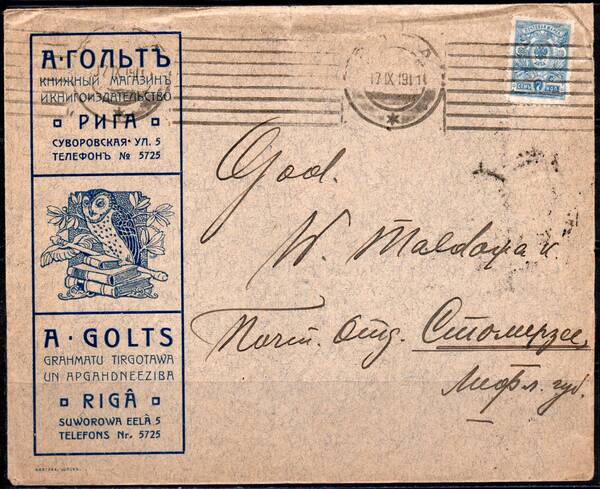 А·ГОЛЬТЪ
КНИЖНЫЙ МАГАЗИНЪ
И КНИГОИЗДАТЕЛЬСТВО
РИГА
СУВОРОВСКАЯ УЛ. 5
ТЕЛЕФОНЪ № 5725
17 IX 191
7
God.
W. Maldoņa k.
Почт. Отд. Стомерзее,
Лифл. губ.
A·GOLTS
GRAHMATU TIRGOTAWA
UN APGAHDNEEZIBA
RIGÂ
SUWOROWA EELÂ 5
TELEFONS Nr. 5725